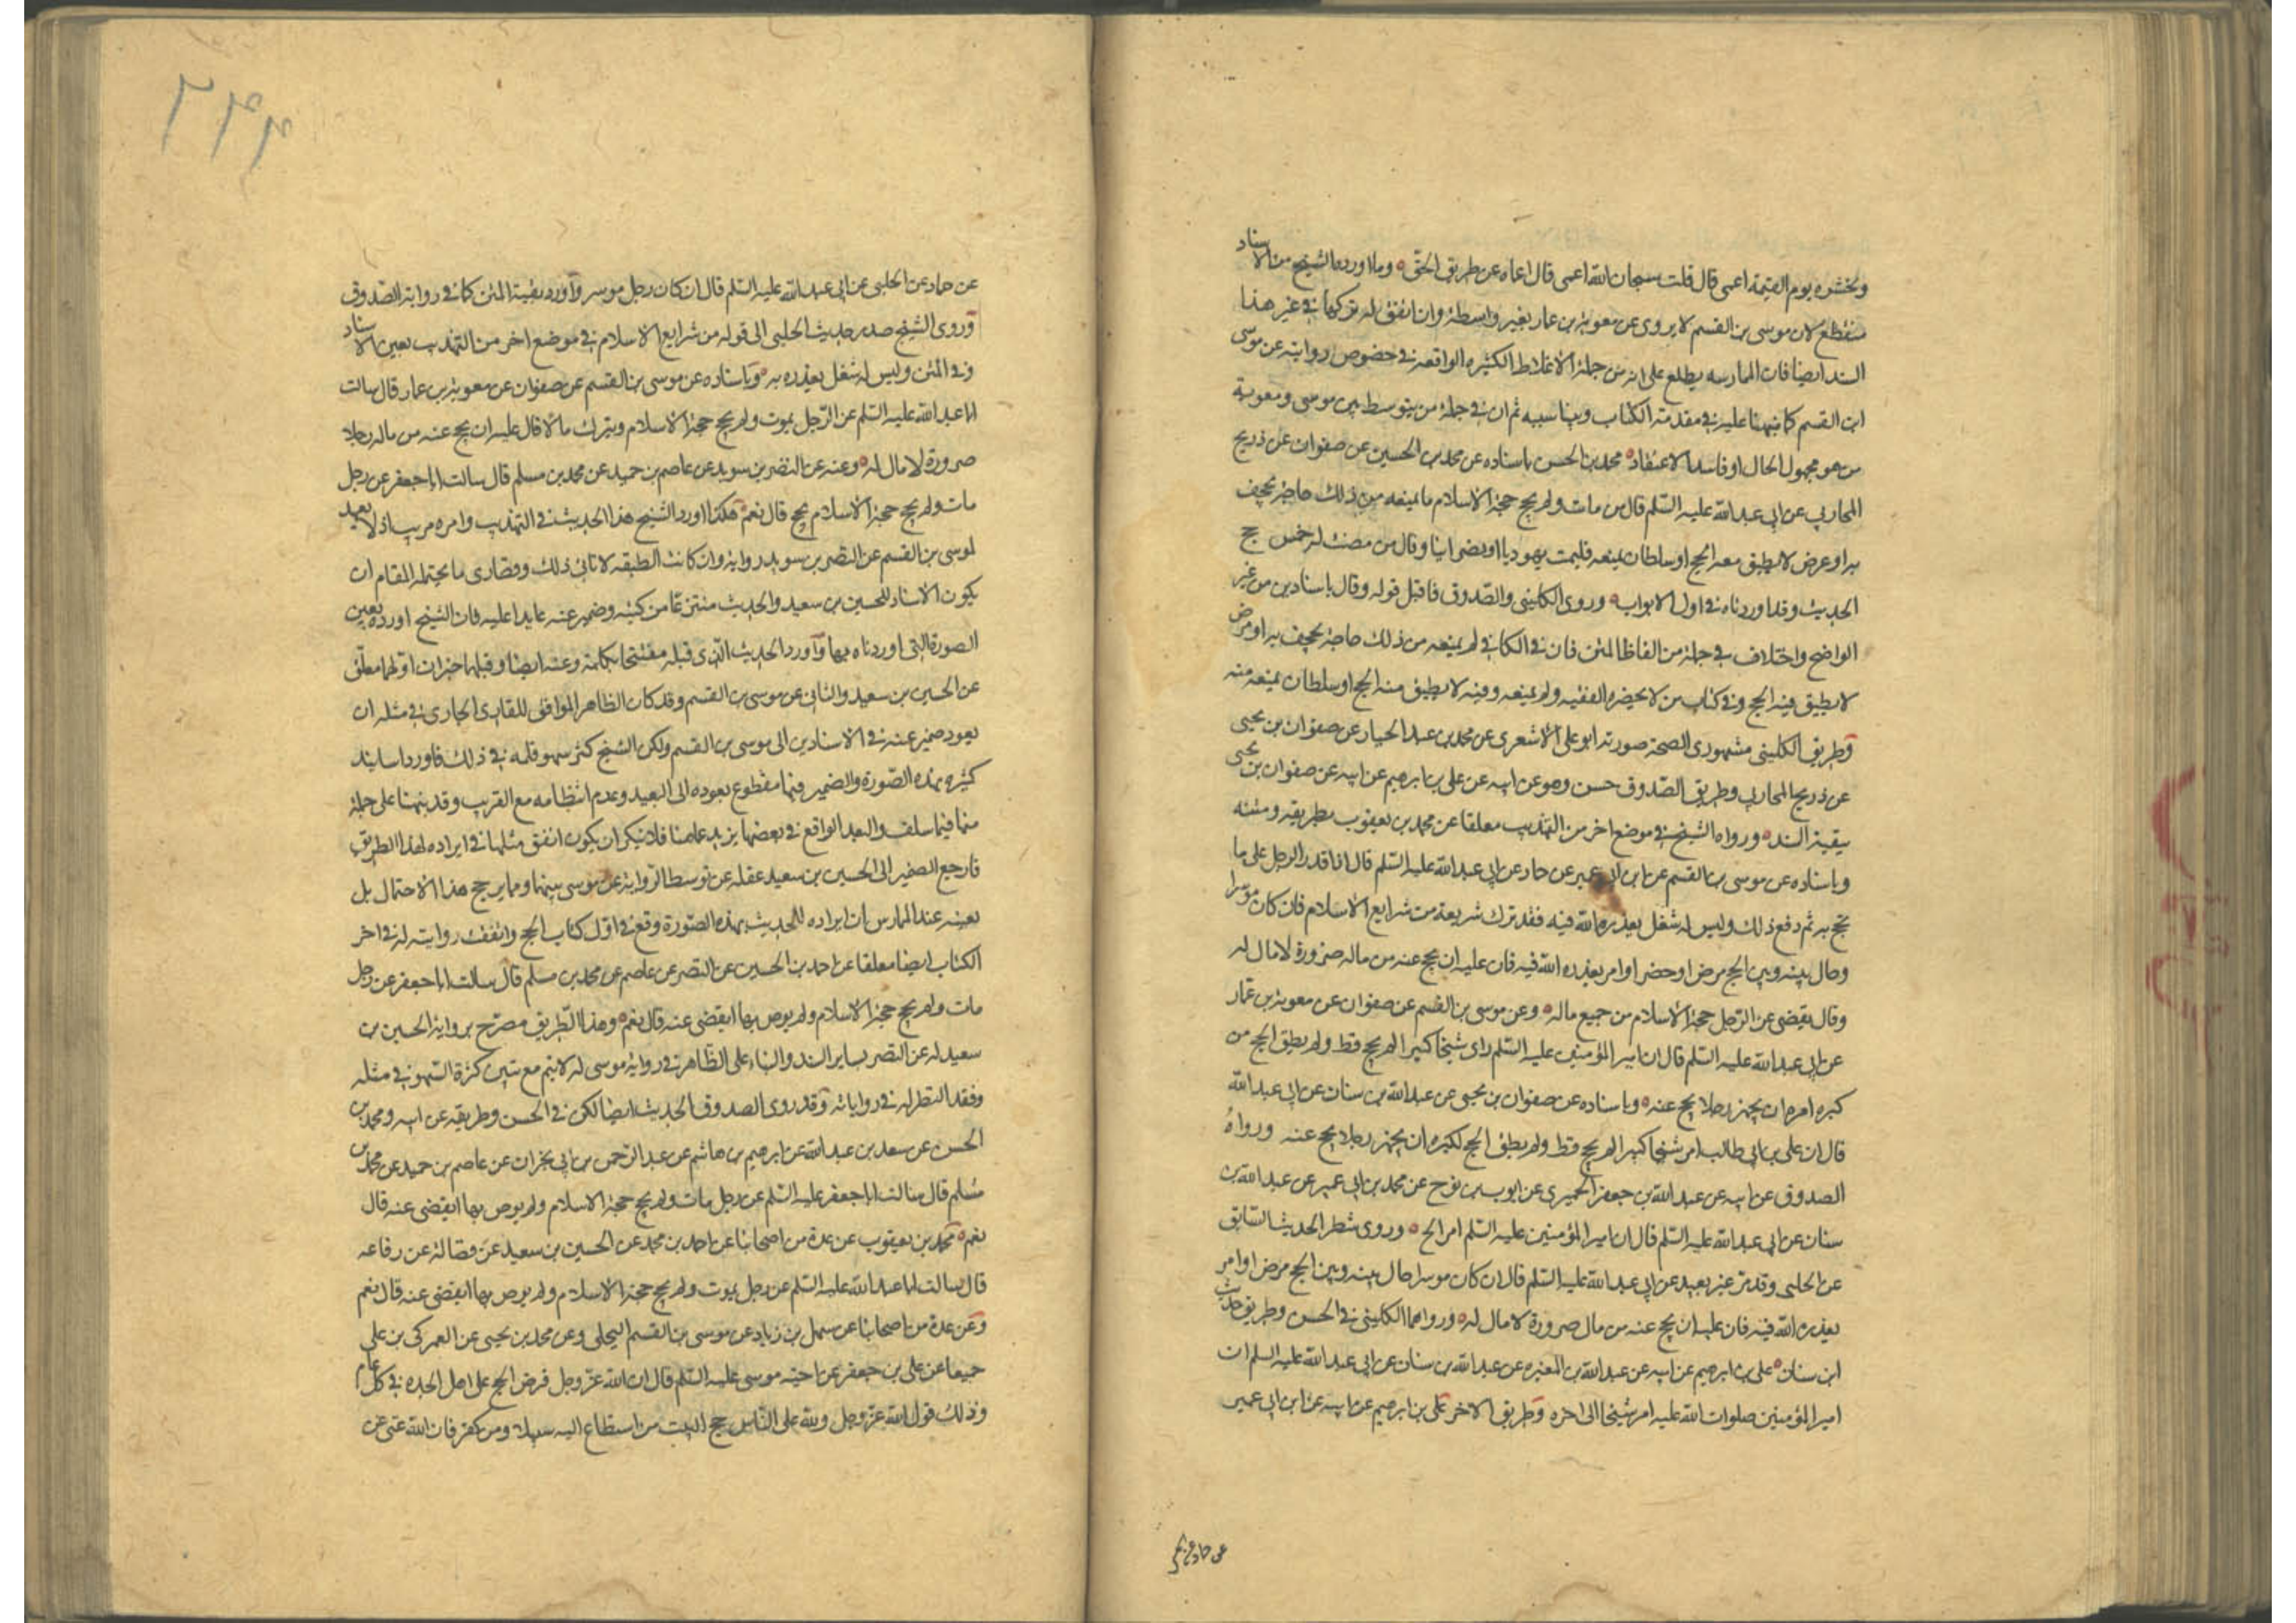 ونحشره يوم القيمة اعمى قال قلت سبحان الله اعمى قال اعماه عن طريق الحق وما اورده الشيخ من الاسناد
منقطع لان موسى بن القسم لا يروى عن معوية بن عمار بغير واسطة وان اتفق له تركها في غير هذا
السند ايضا فان الممارسه يطلع على انه من جملة الاغلاط الكثيره الواقعه في خصوص روايته عن موسى
ابن القسم كما نبهنا عليه في مقدمة الكتاب وبيناسببه ثم ان في جملة من يتوسط بين موسى ومعوية
من هو مجهول الحال او فاسد الاعتقاد محمد بن الحسن باسناده عن محمد بن الحسين عن صفوان عن ذريح
المحاربي عن ابي عبد الله عليه السلم قال من مات ولم يحج حجة الاسلام ما يمنعه من ذلك حاجة تجحف
به او مرض لا يطيق معه الحج او سلطان يمنعه فليمت يهوديا او نصرانيا وقال من مضت له خمس حجج
الحديث وقد اوردناه في اول الابواب وروى الكليني والصدوق ما قبل قوله وقال باسنادين من غير
الواضح واختلاف في جملة من الفاظ المتن فان في الكافي لم يمنعه من ذلك حاجة تجحف به او مرض
لا يطيق فيه الحج وفي كتاب من لا يحضره الفقيه ولم يمنعه وفيه لا يطيق منه الحج او سلطان يمنعه منه
وطريق الكليني مشهورى الصحة صورته ابو علي الاشعري عن محمد بن عبد الجبار عن صفوان بن يحيى
عن ذريح المحاربي وطريق الصدوق حسن وهو عن ابيه عن علي بن ابرهيم عن ابيه عن صفوان بن يحيى
ببقية السند ورواه الشيخ في موضع اخر من التهذيب معلقا عن محمد بن يعقوب بطريقه ومتنه
وباسناده عن موسى بن القسم عن ابن ابي عمير عن حماد عن ابي عبد الله عليه السلم قال اذا قدر الرجل على ما
يحج به ثم دفع ذلك وليس له شغل يعذره الله فيه فقد ترك شريعة من شرايع الاسلام فان كان موسرا
وحال بينه وبين الحج مرض او حضر او امر يعذره الله فيه فان عليه ان يحج عنه من ماله صرورة لا مال له
وقال يقضى عن الرجل حجة الاسلام من جميع ماله وعن موسى بن القسم عن صفوان عن معوية بن عمار
عن ابي عبد الله عليه السلم قال ان امير المؤمنين عليه السلم راى شيخا كبيرا لم يحج قط ولم يطق الحج من
كبره امره ان يجهز رجلا يحج عنه وباسناده عن صفوان بن يحيى عن عبد الله بن سنان عن ابي عبد الله
قال ان علي بن ابي طالب امر شيخا كبيرا لم يحج قط ولم يطق الحج لكبره ان يجهز رجلا يحج عنه ورواه
الصدوق عن ابيه عن عبد الله بن جعفر الحميري عن ايوب بن نوح عن محمد بن ابي عمير عن عبد الله بن
سنان عن ابي عبد الله عليه السلم قال ان امير المؤمنين عليه السلم امر الخ وروى شطر الحديث السابق
عن الحلبي وقد مر غير بعيد عن ابي عبد الله عليه السلم قال ان كان موسرا حال بينه وبين الحج مرض او امر
يعذره الله فيه فان عليه ان يحج عنه من مال صرورة لا مال له ورواهما الكليني في الحسن وطريق حديث
ابن سنان علي بن ابرهيم عن ابيه عن عبد الله بن المغيره عن عبد الله بن سنان عن ابي عبد الله عليه السلم ان
امير المؤمنين صلوات الله عليه امر شيخا الى اخره وطريق الاخر علي بن ابرهيم عن ابيه عن ابن ابي عمير
عن حماد عن
٢٤٤
عن حماد عن الحلبي عن ابي عبد الله عليه السلم قال ان كان رجل موسر واورد بقية المتن كما في رواية الصدوق
وروى الشيخ صدر حديث الحلبي الى قوله من شرايع الاسلام في موضع اخر من التهذيب بعين الاسناد
وفي المتن وليس له شغل يعذره به وباسناده عن موسى بن القسم عن صفوان عن معوية بن عمار قال سالت
ابا عبد الله عليه السلم عن الرجل يموت ولم يحج حجة الاسلام ويترك مالا قال عليه ان يحج عنه من ماله رجلا
صرورة لا مال له وعنه عن النضر بن سويد عن عاصم بن حميد عن محمد بن مسلم قال سالت ابا جعفر عن رجل
مات ولم يحج حجة الاسلام يحج قال نعم هكذا اورد الشيخ هذا الحديث في التهذيب وامره مريب اذ لا يعهد
لموسى بن القسم عن النضر بن سويد رواية وان كانت الطبقه لا تابى ذلك وقصارى ما يحتمله المقام ان
يكون الاسناد للحسين بن سعيد والحديث منتزعا من كتبه وضمير عنه عايدا عليه فان الشيخ اورده بعين
الصورة التي اوردناه بها واورد الحديث الذي قبله مفتتحا بكلمة وعنه ايضا وقبلهما خبران اولهما معلق
عن الحسين بن سعيد والثاني عن موسى بن القسم وقد كان الظاهر الموافق للقاعدة الجارى في مثله ان
يعود ضمير عنه في الاسنادين الى موسى بن القسم ولكن الشيخ كثر سهو قلمه في ذلك فاورد اسانيد
كثيره بهذه الصورة والضمير فيها مقطوع بعوده الى البعيد وعدم انتظامه مع القريب وقد نبهنا على جملة
منها فيما سلف والبعد الواقع في بعضها يزيد على ما هنا فلا ينكر ان يكون اتفق مثلها في ايراده لهذا الطريق
فارجع الضمير الى الحسين بن سعيد غفله عن توسط الرواية عن موسى بينهما ومما يرجح هذا الاحتمال بل
يعينه عند الممارس ان ايراده للحديث بهذه الصورة وقع في اول كتاب الحج واتفقت روايته له في اخر
الكتاب ايضا معلقا عن احمد بن الحسين عن النضر عن عاصم عن محمد بن مسلم قال سالت ابا جعفر عن رجل
مات ولم يحج حجة الاسلام ولم يوص بها ايقضى عنه قال نعم وهذا الطريق مصرح برواية الحسين بن
سعيد له عن النضر بساير السند والبناء على الظاهر في رواية موسى له لا يتم مع تبين كثرة السهو في مثله
وفقد النظر له في رواياته وقد روى الصدوق الحديث ايضا لكن في الحسن وطريقه عن ابيه ومحمد بن
الحسن عن سعد بن عبد الله عن ابرهيم بن هاشم عن عبد الرحمن بن ابي نجران عن عاصم بن حميد عن محمد بن
مسلم قال سالت ابا جعفر عليه السلم عن رجل مات ولم يحج حجة الاسلام ولم يوص بها ايقضى عنه قال
نعم محمد بن يعقوب عن عدة من اصحابنا عن احمد بن محمد عن الحسين بن سعيد عن فضالة عن رفاعه
قال سالت ابا عبد الله عليه السلم عن رجل يموت ولم يحج حجة الاسلام ولم يوص بها ايقضى عنه قال نعم
وعن عدة من اصحابنا عن سهل بن زياد عن موسى بن القسم البجلي وعن محمد بن يحيى عن العمركي بن علي
جميعا عن علي بن جعفر عن اخيه موسى عليه السلم قال ان الله عز وجل فرض الحج على اهل الجده في كل عام
وذلك قول الله عز وجل ولله على الناس حج البيت من استطاع اليه سبيلا ومن كفر فان الله غني عن